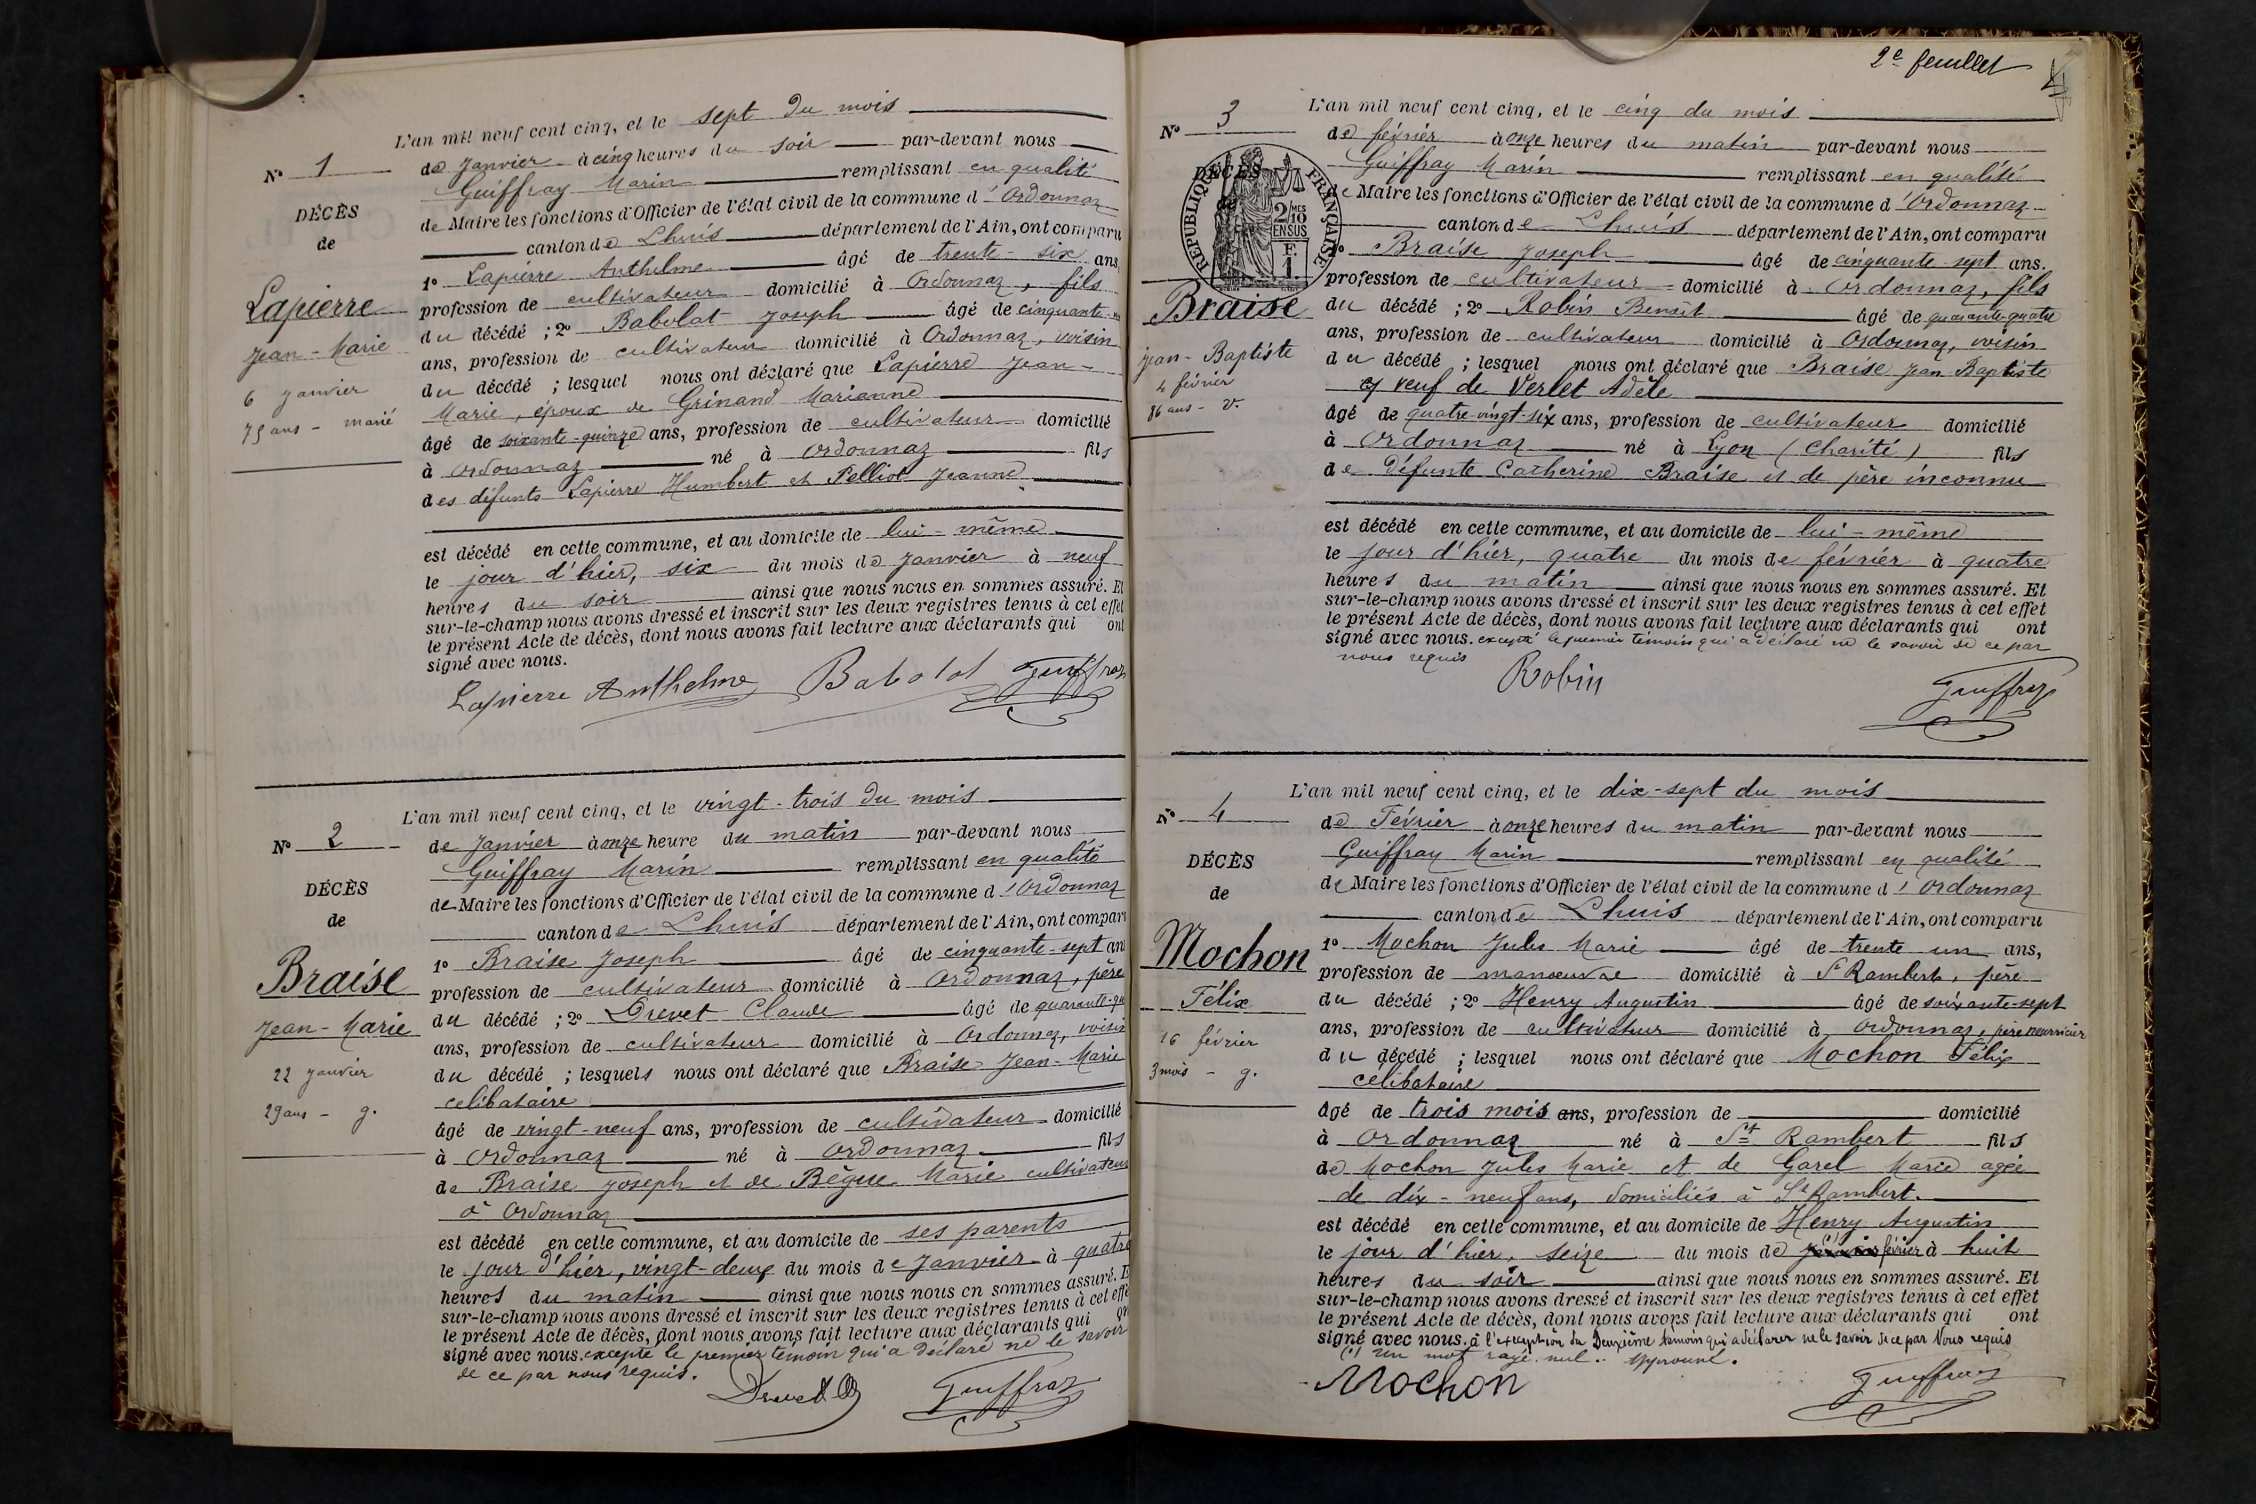 L'an mil neuf cent cinq, et le sept du mois
N° 1
de Janvier à cinq heures du soir par-devant nous
Guiffray Marin remplissant en qualité
DÉCÈS
de Maire les fonctions d'Officier de l'état civil de la commune d'Ordonnaz
de
canton de Lhuis département de l'Ain, ont comparu
1° Lapierre Anthelme âgé de trente-six ans
Lapierre
profession de cultivateur domicilié à Ordonnaz, fils
du décédé ; 2° Babolat Joseph âgé de cinquante
Jean-Marie
ans, profession de cultivateur domicilié à Ordonnaz, voisin
6 Janvier
du décédé ; lesquel nous ont déclaré que Lapierre Jean-
Marie, époux de Grinand Marianne
75 ans - marié
âgé de soixante-quinze ans, profession de cultivateur domicilié
à Ordonnaz né à Ordonnaz fils
des défunts Lapierre Humbert et Felliot Jeanne
est décédé en cette commune, et au domicile de lui-même
le jour d'hier, six du mois de Janvier à neuf
heures du soir ainsi que nous nous en sommes assuré. Et
sur-le-champ nous avons dressé et inscrit sur les deux registres tenus à cet effet
le présent Acte de décès, dont nous avons fait lecture aux déclarants qui ont
signé avec nous.
Lapierre Anthelme Babolat Guiffray
L'an mil neuf cent cinq, et le vingt-trois du mois
N° 2
de Janvier à onze heure du matin par-devant nous
Guiffray Marin remplissant en qualité
DÉCÈS
de Maire les fonctions d'Officier de l'état civil de la commune d'Ordonnaz
de
canton de Lhuis département de l'Ain, ont compar
1° Braise Joseph âgé de cinquante-sept an
Braise
profession de cultivateur domicilié à Ordonnaz, père
du décédé ; 2° Drevet Claude âgé de quarante-qu
Jean-Marie
ans, profession de cultivateur domicilié à Ordonnaz, voisin
22 Janvier
du décédé ; lesquels nous ont déclaré que Braise Jean-Marie
celibataire
29 ans - g.
âgé de vingt-neuf ans, profession de cultivateur domicilié
à Ordonnaz né à Ordonnaz fils
de Braise Joseph et de Bègue Marie cultivateurs
à Ordonnaz
est décédé en cette commune, et au domicile de ses parents
le jour d'hier, vingt-deux du mois de Janvier à quatre
heures du matin ainsi que nous nous en sommes assuré. E
sur-le-champ nous avons dressé et inscrit sur les deux registres tenus à cet effe
le présent Acte de décès, dont nous avons fait lecture aux déclarants qui on
signé avec nous. excepté le premier témoin qui a déclaré ne le savoir
de ce par nous requis.
Drevet Guiffray
2e feuillet
4
L'an mil neuf cent cinq, et le cinq du mois
N° 3
de février à onze heures du matin par-devant nous
Guiffray Marin remplissant en qualité
DÉCÈS
RÉPUBLIQUE FRANÇAISE
2/10 MES EN SUS
E. 1
de Maire les fonctions d'Officier de l'état civil de la commune d'Ordonnaz
canton de Lhuis département de l'Ain, ont comparu
1° Braise Joseph âgé de cinquante sept ans.
profession de cultivateur domicilié à Ordonnaz, fils
Braise
du décédé ; 2° Robin Benoit âgé de quarante-quatre
ans, profession de cultivateur domicilié à Ordonnaz, voisin
Jean-Baptiste
du décédé ; lesquel nous ont déclaré que Braise Jean Baptiste
4 février
veuf de Verlet Adèle
86 ans - v.
âgé de quatre-vingt-six ans, profession de cultivateur domicilié
à Ordonnaz né à Lyon (Charité) fils
de défunte Catherine Braise et de père inconnu
est décédé en cette commune, et au domicile de lui-même
le jour d'hier, quatre du mois de février à quatre
heures du matin ainsi que nous nous en sommes assuré. Et
sur-le-champ nous avons dressé et inscrit sur les deux registres tenus à cet effet
le présent Acte de décès, dont nous avons fait lecture aux déclarants qui ont
signé avec nous. excepté le premier témoin qui a déclaré ne le savoir de ce par
nous requis
Robin Guiffray
L'an mil neuf cent cinq, et le dix-sept du mois
N° 4
de Février à onze heures du matin par-devant nous
Guiffray Marin remplissant en qualité
DÉCÈS
de Maire les fonctions d'Officier de l'état civil de la commune d'Ordonnaz
de
canton de Lhuis département de l'Ain, ont comparu
1° Mochon Jules Marie âgé de trente un ans,
Mochon
profession de manoeuvre domicilié à St Rambert, père
Félix
du décédé ; 2° Henry Augustin âgé de soixante-sept
ans, profession de cultivateur domicilié à Ordonnaz, père nourricier
16 février
du décédé ; lesquel nous ont déclaré que Mochon Félix
3 mois - g.
célibataire
âgé de trois mois ans, profession de domicilié
à Ordonnaz né à St Rambert fils
de Mochon Jules Marie et de Garel Marie agée
de dix-neuf ans, domiciliés à St Rambert.
est décédé en cette commune, et au domicile de Henry Augustin
le jour d'hier, seize du mois de janvier (1) février à huit
heures du soir ainsi que nous nous en sommes assuré. Et
sur-le-champ nous avons dressé et inscrit sur les deux registres tenus à cet effet
le présent Acte de décès, dont nous avons fait lecture aux déclarants qui ont
signé avec nous. à l'exception du Deuxième témoin qui a déclarer ne le savoir de ce par Nous requis
(1) Un mot rayé nul. Approuvé.
Mochon Guiffray